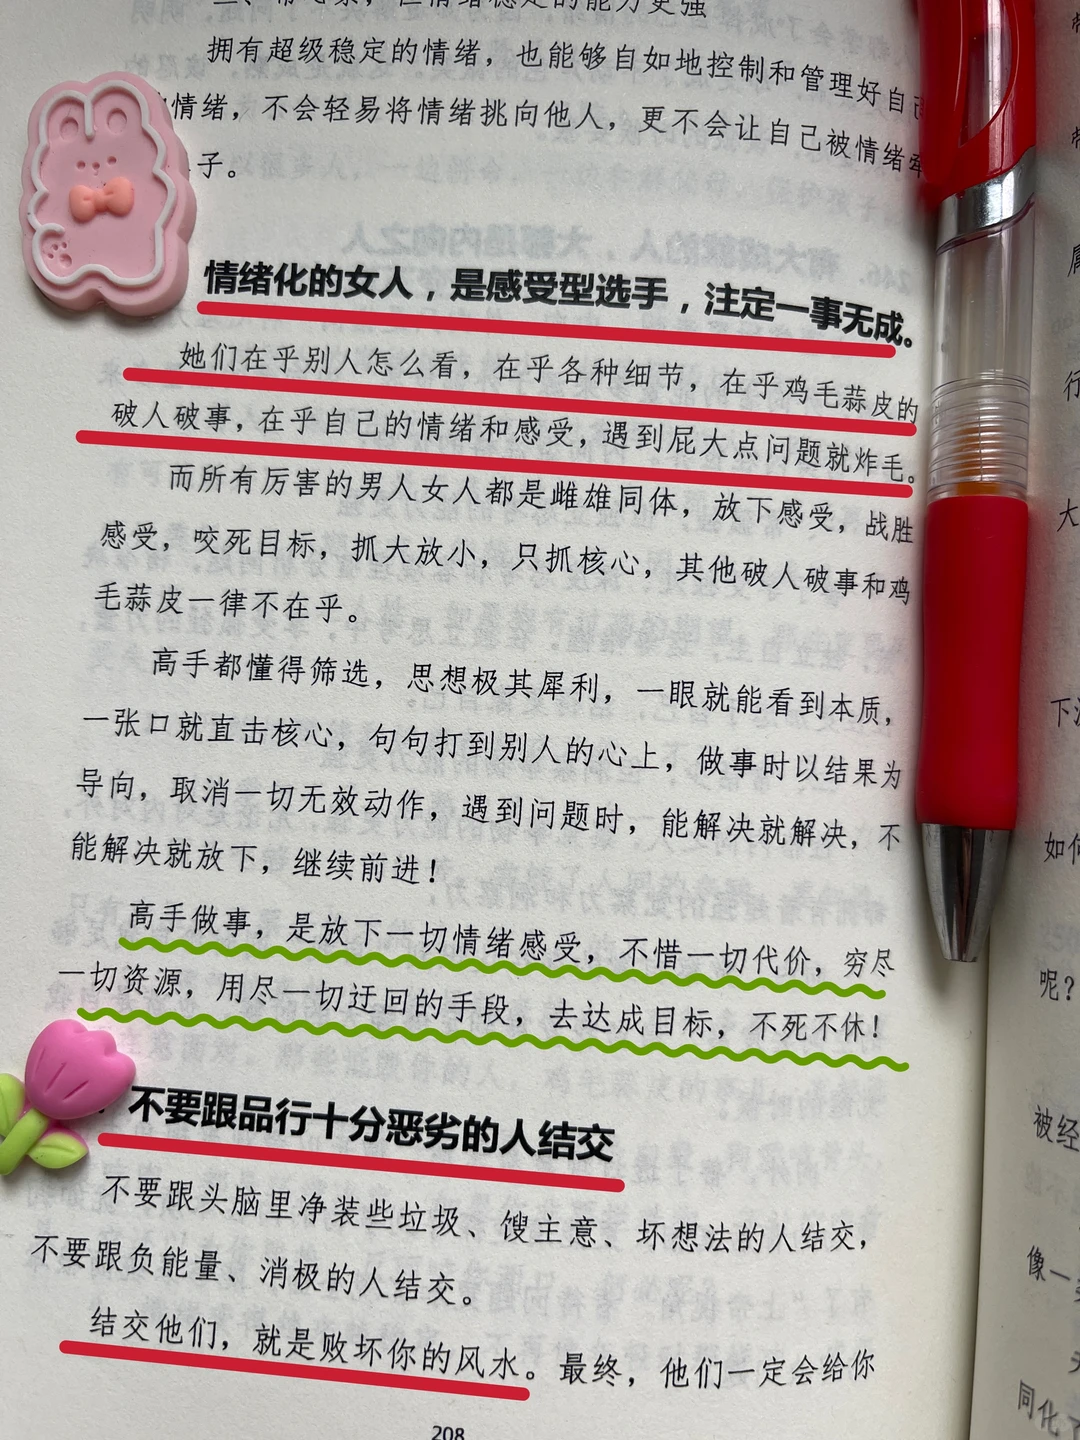 二、带气象，但情绪稳定的能力更强
拥有超级稳定的情绪，也能够自如地控制和管理好自己
情绪，不会轻易将情绪挑向他人，更不会让自己被情绪牵
子。
情绪化的女人，是感受型选手，注定一事无成。
她们在乎别人怎么看，在乎各种细节，在乎鸡毛蒜皮的
破人破事，在乎自己的情绪和感受，遇到屁大点问题就炸毛。
而所有厉害的男人女人都是雌雄同体，放下感受，战胜
感受，咬死目标，抓大放小，只抓核心，其他破人破事和鸡
毛蒜皮一律不在乎。
高手都懂得筛选，思想极其犀利，一眼就能看到本质，
一张口就直击核心，句句打到别人的心上，做事时以结果为
导向，取消一切无效动作，遇到问题时，能解决就解决，不
能解决就放下，继续前进！
高手做事，是放下一切情绪感受，不惜一切代价，穷尽
一切资源，用尽一切迂回的手段，去达成目标，不死不休！
不要跟品行十分恶劣的人结交
不要跟头脑里净装些垃圾、馊主意、坏想法的人结交，
不要跟负能量、消极的人结交。
结交他们，就是败坏你的风水。最终，他们一定会给你
208
行
大
下
如何
呢？
被经
像一
同化